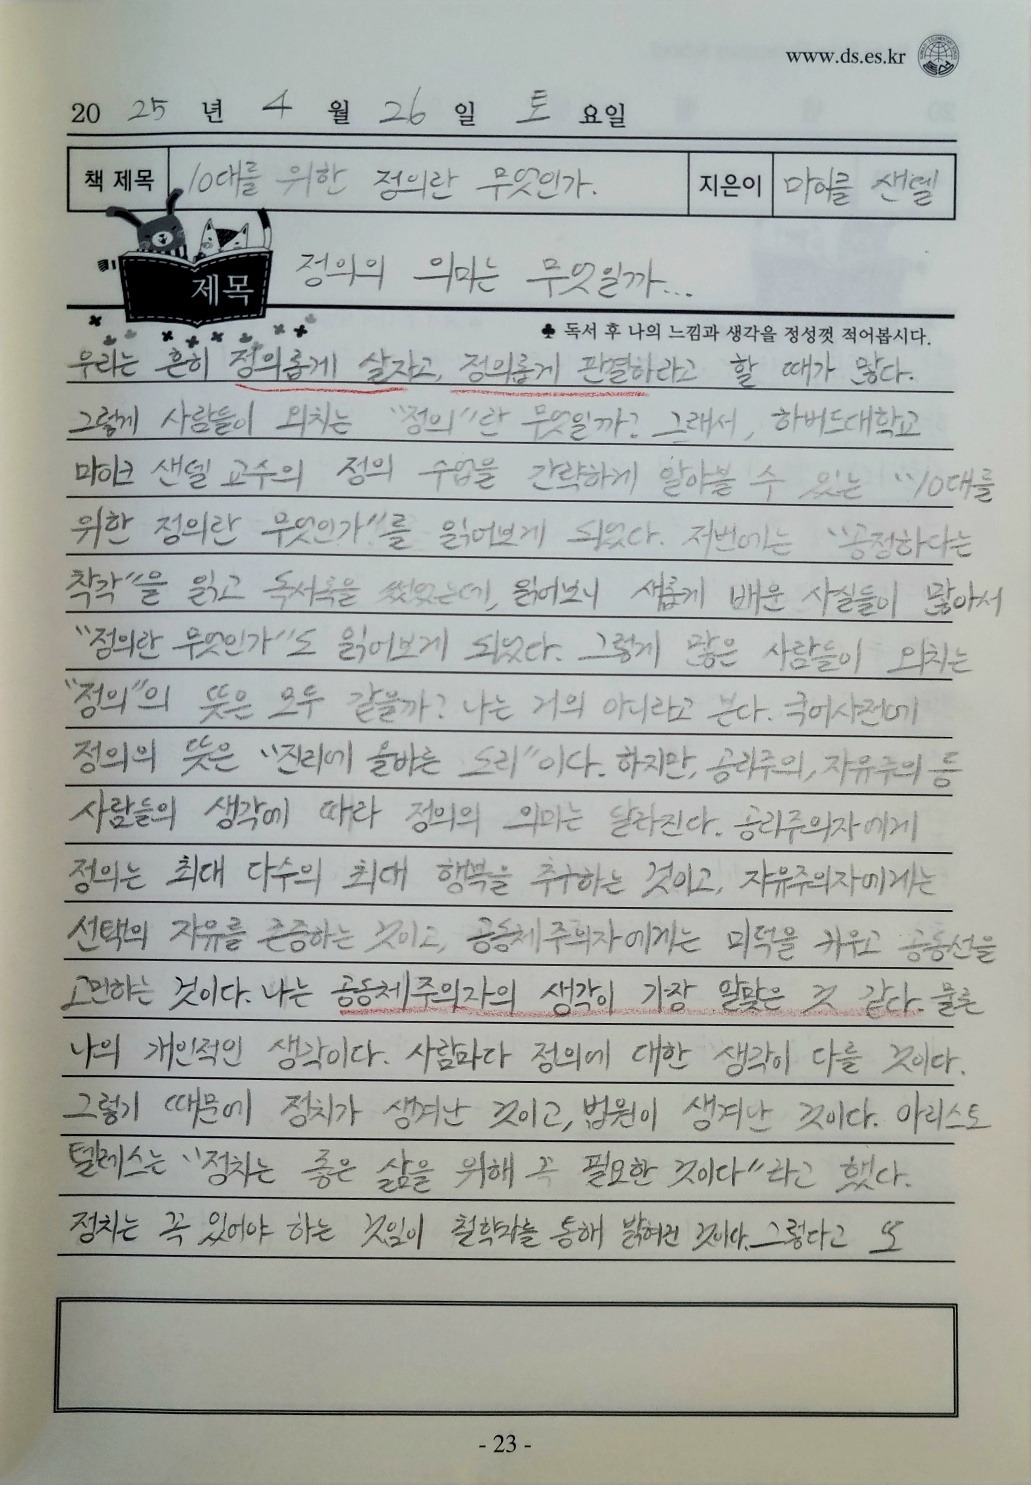 www.ds.es.kr
20 25 년 4 월 26 일 토 요일
책 제목 10대를 위한 정의란 무엇인가. 지은이 마이클 샌델
제목 정의의 의미는 무엇일까...
♣ 독서 후 나의 느낌과 생각을 정성껏 적어봅시다.
우리는 흔히 정의롭게 살자고, 정의롭게 판결하라고 할 때가 많다.
그렇게 사람들이 외치는 "정의"란 무엇일까? 그래서, 하버드대학교
마이크 샌델 교수의 정의 수업을 간략하게 알아볼 수 있는 "10대를
위한 정의란 무엇인가"를 읽어보게 되었다. 저번에는 "공정하다는
착각"을 읽고 독서록을 썼었는데, 읽어보니 새롭게 배운 사실들이 많아서
"정의란 무엇인가"도 읽어보게 되었다. 그렇게 많은 사람들이 외치는
"정의"의 뜻은 모두 같을까? 나는 거의 아니라고 본다. 국어사전에
정의의 뜻은 "진리에 올바른 도리"이다. 하지만, 공리주의, 자유주의 등
사람들의 생각에 따라 정의의 의미는 달라진다. 공리주의자에게
정의는 최대 다수의 최대 행복을 추구하는 것이고, 자유주의자에게는
선택의 자유를 존중하는 것이고, 공동체주의자에게는 미덕을 키우고 공동선을
고민하는 것이다. 나는 공동체주의자의 생각이 가장 알맞은 것 같다. 물론
나의 개인적인 생각이다. 사람마다 정의에 대한 생각이 다를 것이다.
그렇기 때문에 정치가 생겨난 것이고, 법원이 생겨난 것이다. 아리스토
텔레스는 "정치는 좋은 삶을 위해 꼭 필요한 것이다"라고 했다.
정치는 꼭 있어야 하는 것임이 철학자를 통해 밝혀진 것이다. 그렇다고 또
- 23 -